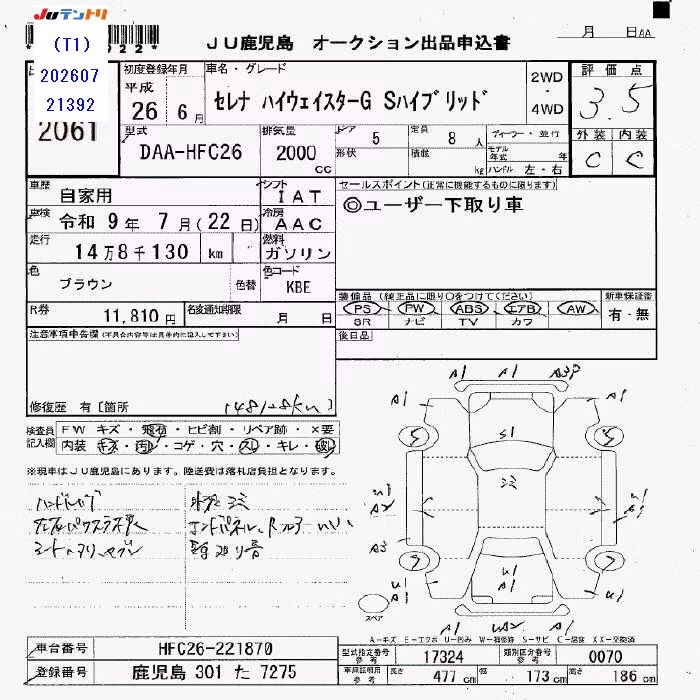 JUテントリ
(T1)
202607
21392
2061
JU鹿児島 オークション出品申込書
月 日
初度登録年月
平成
26 6月
車名・グレード
セレナ ハイウェイスターG Sハイブリッド
2WD
・
4WD
評価点
3.5
外装 内装
C C
型式
DAA-HFC26
排気量
2000
CC
ドア 5
定員 8 人
形状
積載 kg
ディーラー・並行
モデル年式 年
ハンドル 左・右
車歴
自家用
シフト
IAT
車検 令和 9年 7月(22日)
冷房
AAC
走行
14万8千130 km
燃料
ガソリン
色
ブラウン
色替
色コード
KBE
R券
11,810 円
名変通知期限
月 日
セールスポイント(正常に機能するものに限ります)
◎ユーザー下取り車
装備品(純正品に限り○をつけてください)
PS PW ABS エアB AW
SR ナビ TV カワ
新車保証書
有・無
注意事項申告欄(不具合内容等は具体的に記入して下さい)
後日品
修復歴 有〔箇所 148128km 〕
検査員記入欄
FW キズ・飛石・ヒビ割・リペア跡・×要
内装・キズ・汚れ・コゲ・穴・スレ・キレ・破れ
※現車はJU鹿児島にあります。陸送費は落札店負担となります。
A1 A1 A3P
A1 A1
5 5
S1
ミミ
U1
A2
U1
A1
A3
7 7
U1
A1
U1
A1
U1
A1
スペア
A1 A2 U2 A1
A-キズ E-エクボ U-凹み W-補修跡 S-サビ C-腐食 XX-交換済
車台番号
HFC26-221870
登録番号
鹿児島 301 た 7275
型式指定番号
参考
17324
類別区分番号
参考
0070
車両証明用
参考
長さ 477 cm
幅 173 cm
高さ 186 cm